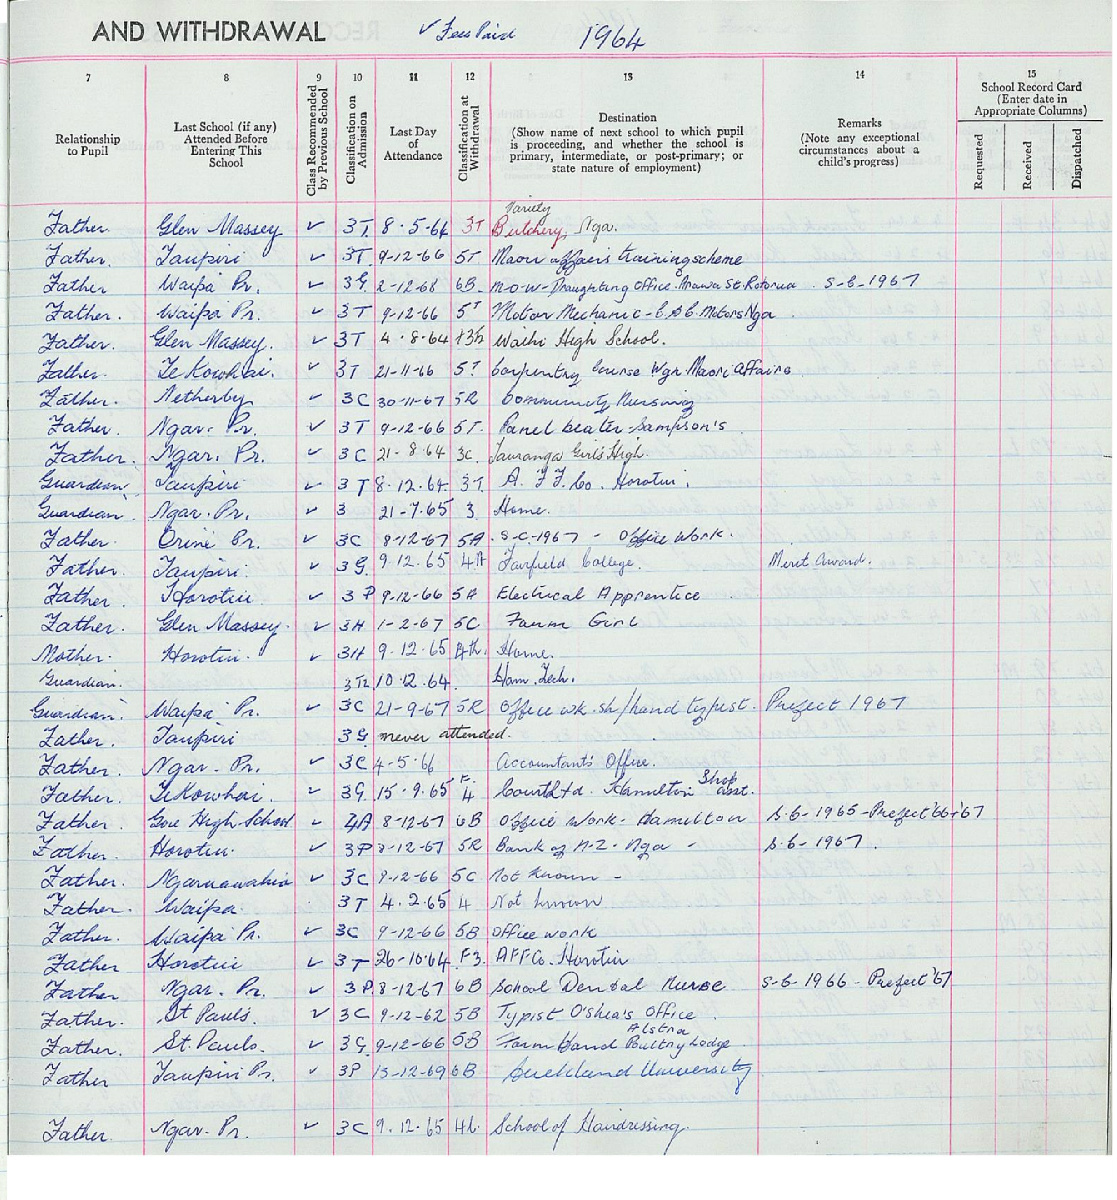 AND WITHDRAWAL ✓ Fees Paid 1964
7 8 9 10 11 12 13 14 15
Relationship to Pupil
Last School (if any) Attended Before Entering This School
Class Recommended by Previous School
Classification on Admission
Last Day of Attendance
Classification at Withdrawal
Destination (Show name of next school to which pupil is proceeding, and whether the school is primary, intermediate, or post-primary; or state nature of employment)
Remarks (Note any exceptional circumstances about a child's progress)
School Record Card (Enter date in Appropriate Columns)
Requested Received Dispatched
Variety
Father Glen Massey ✓ 3T 8-5-64 3T Butchery, Nga.
Father. Taupiri ✓ 3T 9-12-66 5T Maori affairs training scheme
Father Waipa Pr. ✓ 3G 2-12-68 6B M.O.W- Draughting Office. St Rotorua S-6-1967
Father. Waipa Pr. ✓ 3T 9-12-66 5T Motor Mechanic- Motors Nga
Father. Glen Massey. ✓ 3T 4.8.64 Waihi High School.
Father. Te Kowhai. ✓ 3T 21-11-66 5T Carpentry Course Wgn Maori Affairs
Father. Netherby ✓ 3C 30-11-67 5R Community Nursing
Father. Ngar. Pr. ✓ 3T 9-12-66 5T. Panel beater-Sampson's
Father. Ngar. Pr. ✓ 3C 21-8.64 3C Tauranga Girls High.
Guardian Taupiri ✓ 3T 8.12.64. 3T. A.F.F. Co. Horotiu.
Guardian. Ngar. Pr. ✓ 3 21-7.65 3. Home.
Father Orini Pr. ✓ 3C 8-12-67 5A S-C-1967 - Office Work.
Father. Taupiri. ✓ 3G. 9.12.65 4A Fairfield College. Merit Award.
Father. Horotiu ✓ 3P 9-12-66 5A Electrical Apprentice
Father. Glen Massey. ✓ 3H 1-2-67 5C Farm Girl
Mother. Horotiu. ✓ 3H 9.12.65 4th. Home.
Guardian. 10.12.64. Ham. Tech.
Guardian. Waipa Pr. ✓ 3C 21-9-67 5R Office wk. sh/hand typist. Prefect 1967
Father. Taupiri 3G never attended.
Father. Ngar. Pr. ✓ 3C 4-5.66 Accountants Office.
Father. Te Kowhai. ✓ 3G. 15.9.65 F.4 Hamilton Shop asst.
Father. Gore High School ✓ 4A 8-12-67 6B Office Work- Hamilton S-6-1965-Prefect '66+'67
Father. Horotiu. ✓ 3P 8-12-67 5R Bank of N-Z- Nga - S.6-1967.
Father. Ngaruawahia ✓ 3C 9-12-66 5C Not known -
Father. Waipa. 3T 4.2.65 4 Not known
Father. Waipa Pr. ✓ 3C 9-12-66 5B Office work
Father. Horotiu ✓ 3T 26-10.64. F3. AFFCo. Horotiu
Father Ngar. Pr. ✓ 3P. 8-12-67 6B School Dental Nurse S-6-1966-Prefect '67
Father. St Pauls. ✓ 3C 9-12-62 5B Typist O'shea's Office
Father. St. Pauls. ✓ 3G. 9-12-66 5B Farm hand Alstra Poultry Lodge
Father Taupiri Pr. ✓ 3P 15-12-69 6B Auckland University
Father. Ngar. Pr. ✓ 3C 9.12.65 School of Hairdressing.